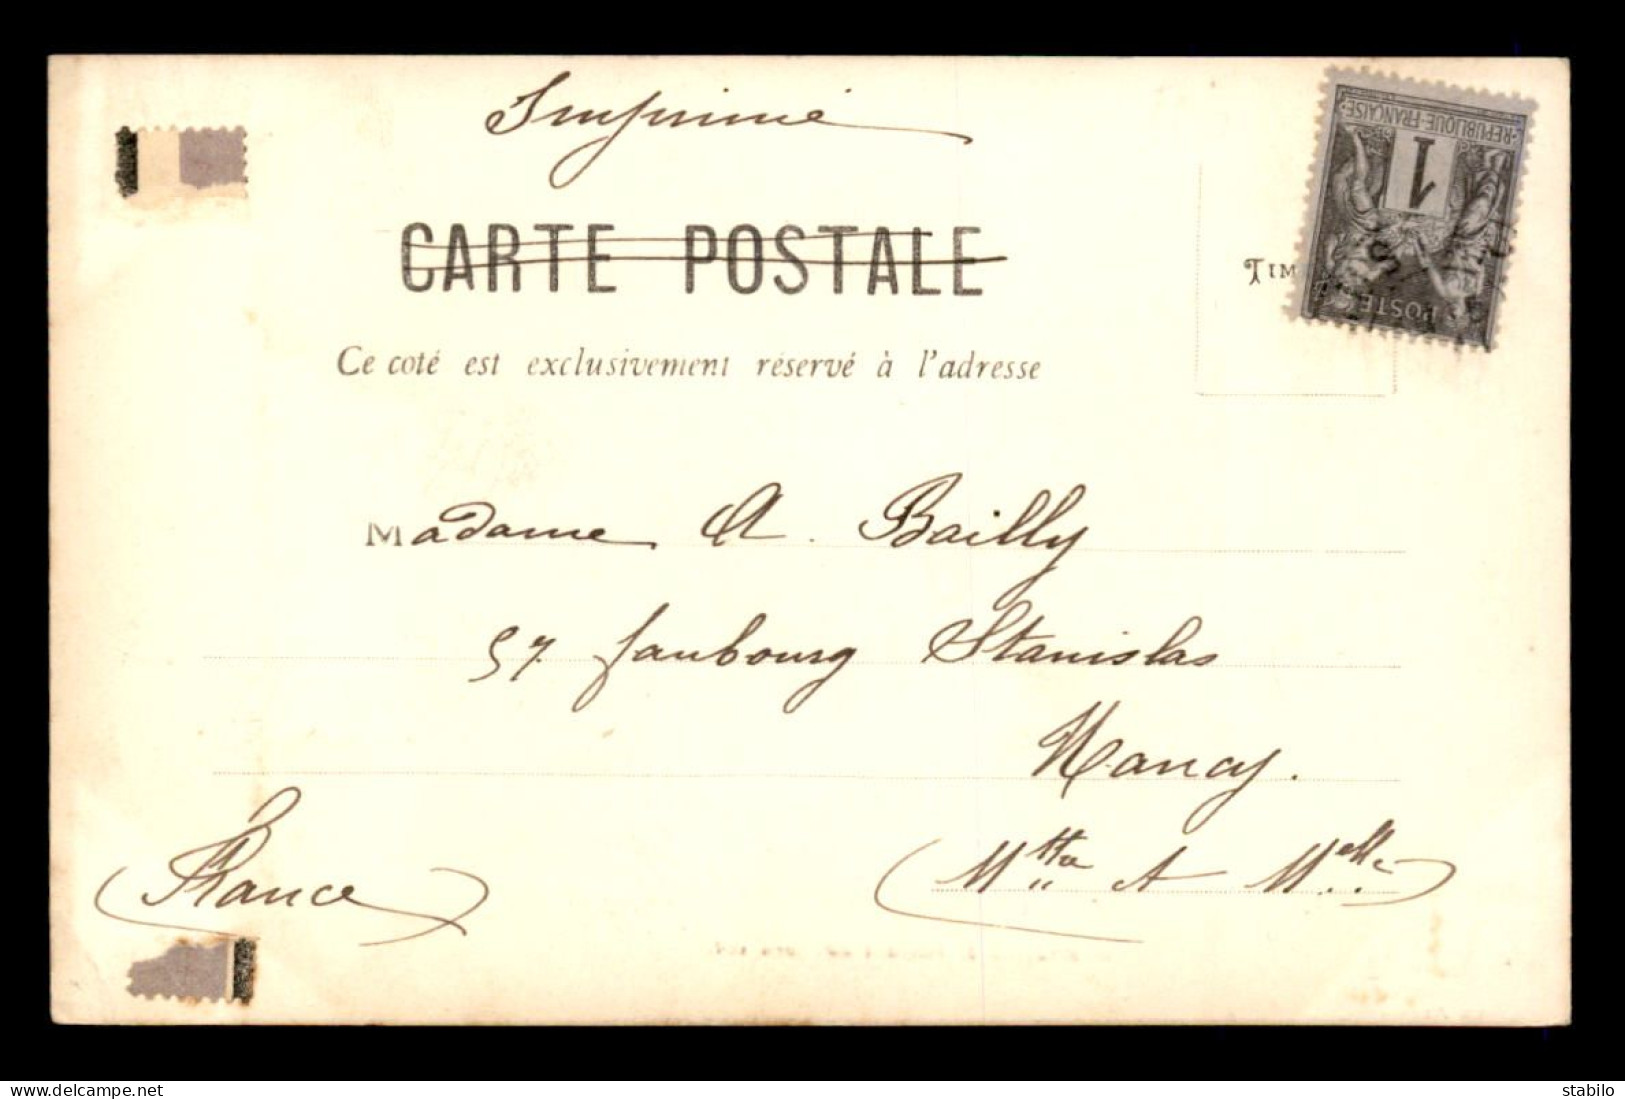 Imprimé
CARTE POSTALE
Ce coté est exclusivement réservé à l'adresse
TIM
REPUBLIQUE FRANÇAISE
1
POSTE
Madame A. Bailly
57 faubourg Stanislas
Nancy.
(France)
stabilo